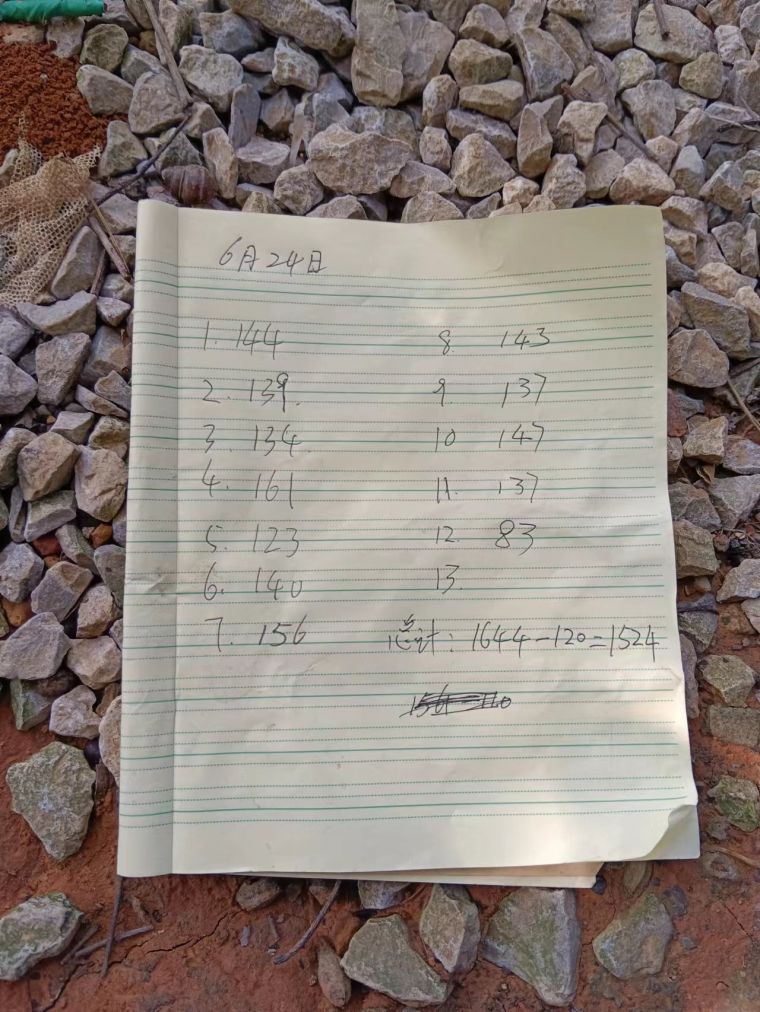 6月24日
1. 144
2. 139.
3. 134.
4. 161
5. 123
6. 140
7. 156
8. 143
9. 137
10 147
11. 137
12. 83
13.
总计: 1644-120=1524